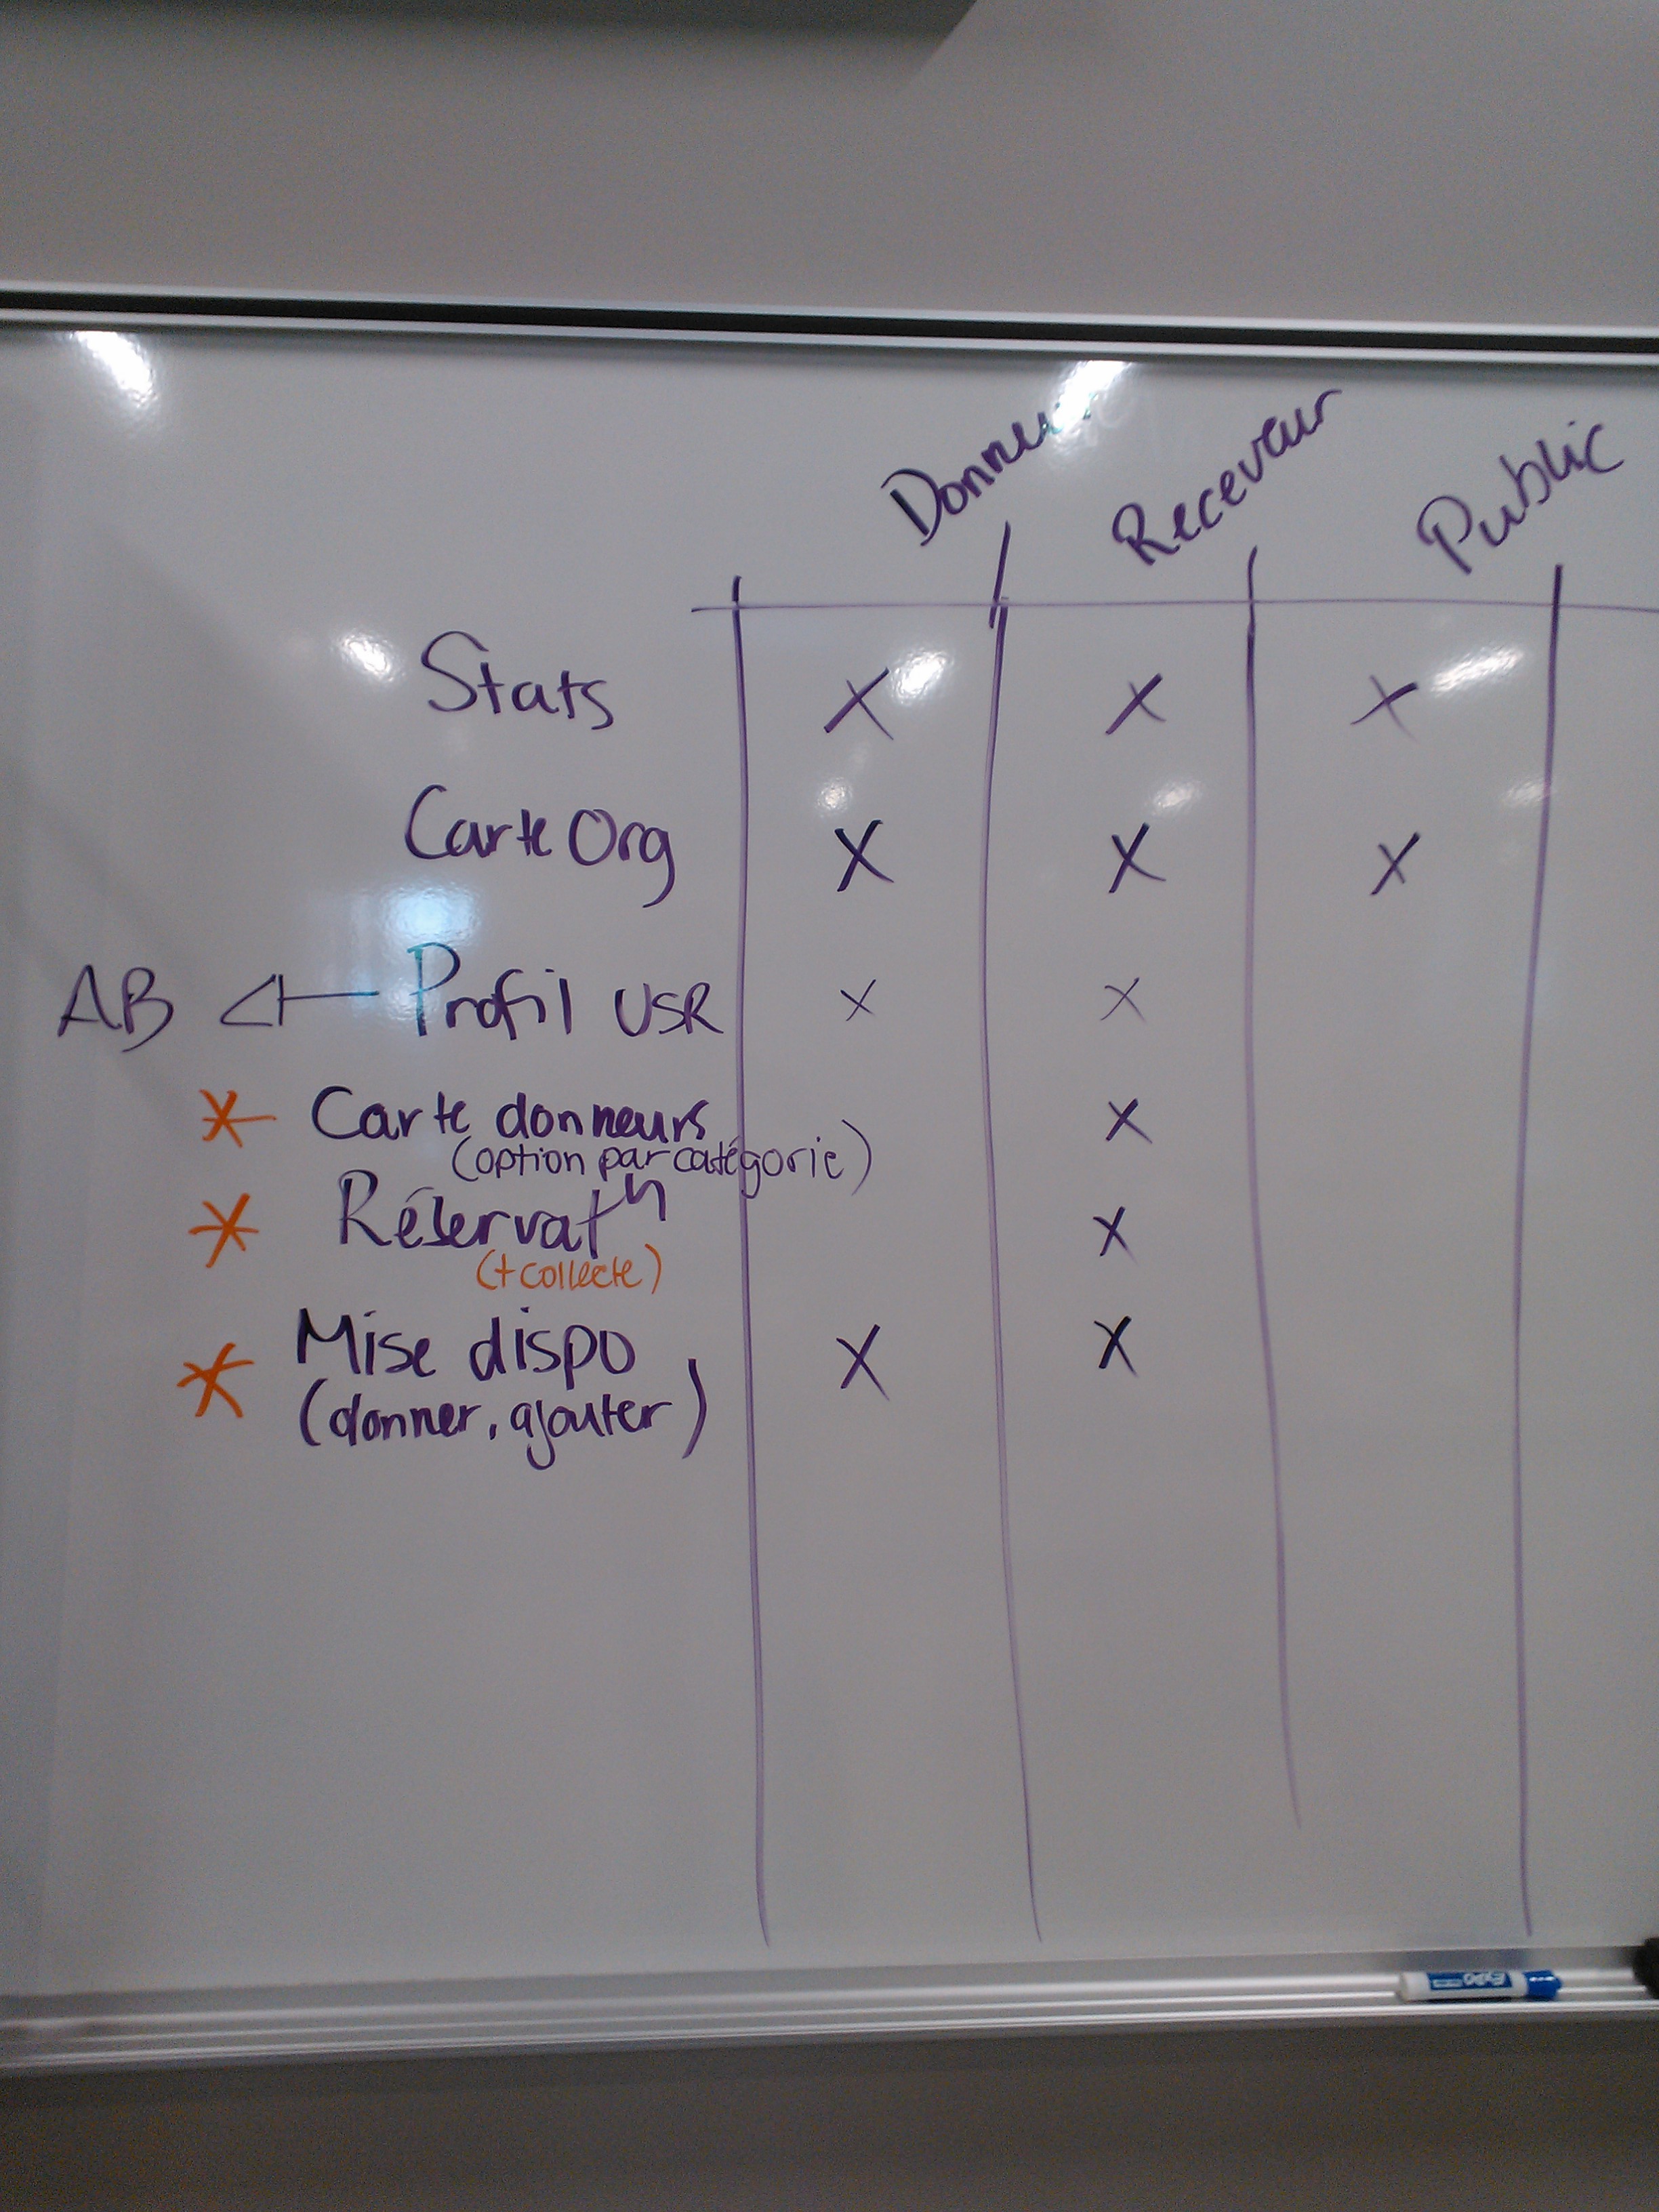 Receveur
Public
Stats X X X
Carte Org X X X
AB Profil USR X X
* Carte donneurs X
(option par catégorie)
* Réservatn X
(+ collecte)
* Mise dispo X X
(donner, ajouter)
EXPO